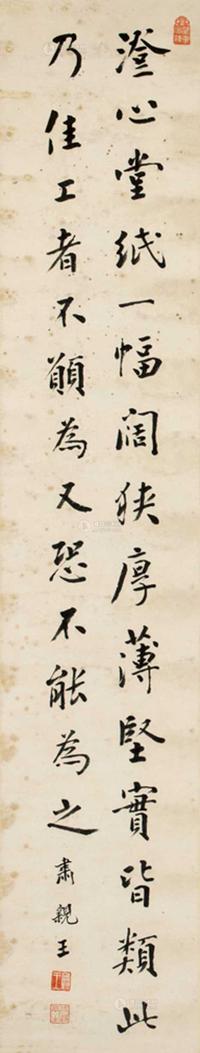 澄心堂紙一幅闊狹厚薄堅實皆類此
乃佳工者不願為又恐不能為之
肅親王